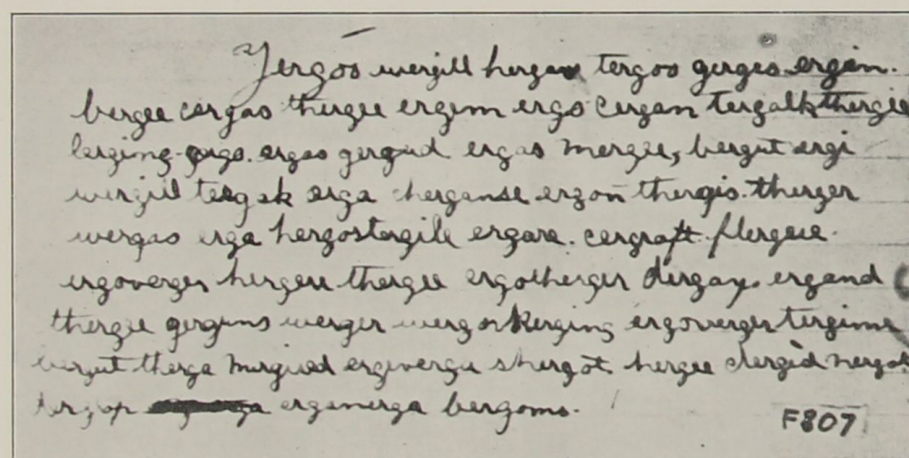 Yergoo wergill hergave tergoo gergeo ergin.
bergee cergas thergee ergem ergo cergan tergalk thergee
lergimg ergas gergud ergas mergee, bergut ergi
wergill tergak erga cherganse ergon thergis. therger
wergas erga hergostergile ergara. cergraft flergew
ergoverger hergere thergee ergotherger dergay. ergand
thergee gerguns werger wergorkerging ergoverger tergime
bergut therga mergued ergevergu shergot. hergee dergid nergot
ergenerga bergoms.
F807